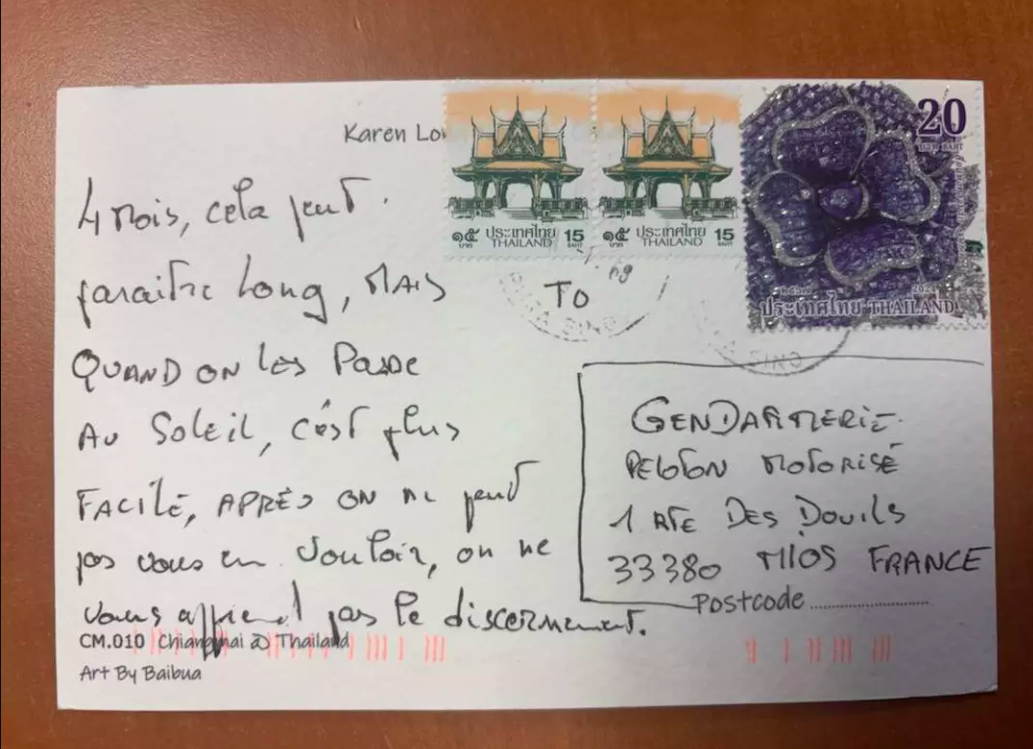 Karen
4 Mois, cela peut.
paraitre Long, MAis
QUAND ON Les Passe
Au Soleil, c'est plus
FACILE, APRÈS ON ne peut
pas vous en vouloir, on ne
vous apprend pas le discernement.
CM.010 Chiangmai Thailand
Art By Baibua
๑๕ ประเทศไทย 15
บาท THAILAND BAHT
๑๕ ประเทศไทย 15
บาท THAILAND BAHT
20
บาท BAHT
ประเทศไทย THAILAND
TO
GENDARMERIE.
PELOTON MOTORISÉ
1 RTE DES DOUILS
33380 MIOS FRANCE
Postcode